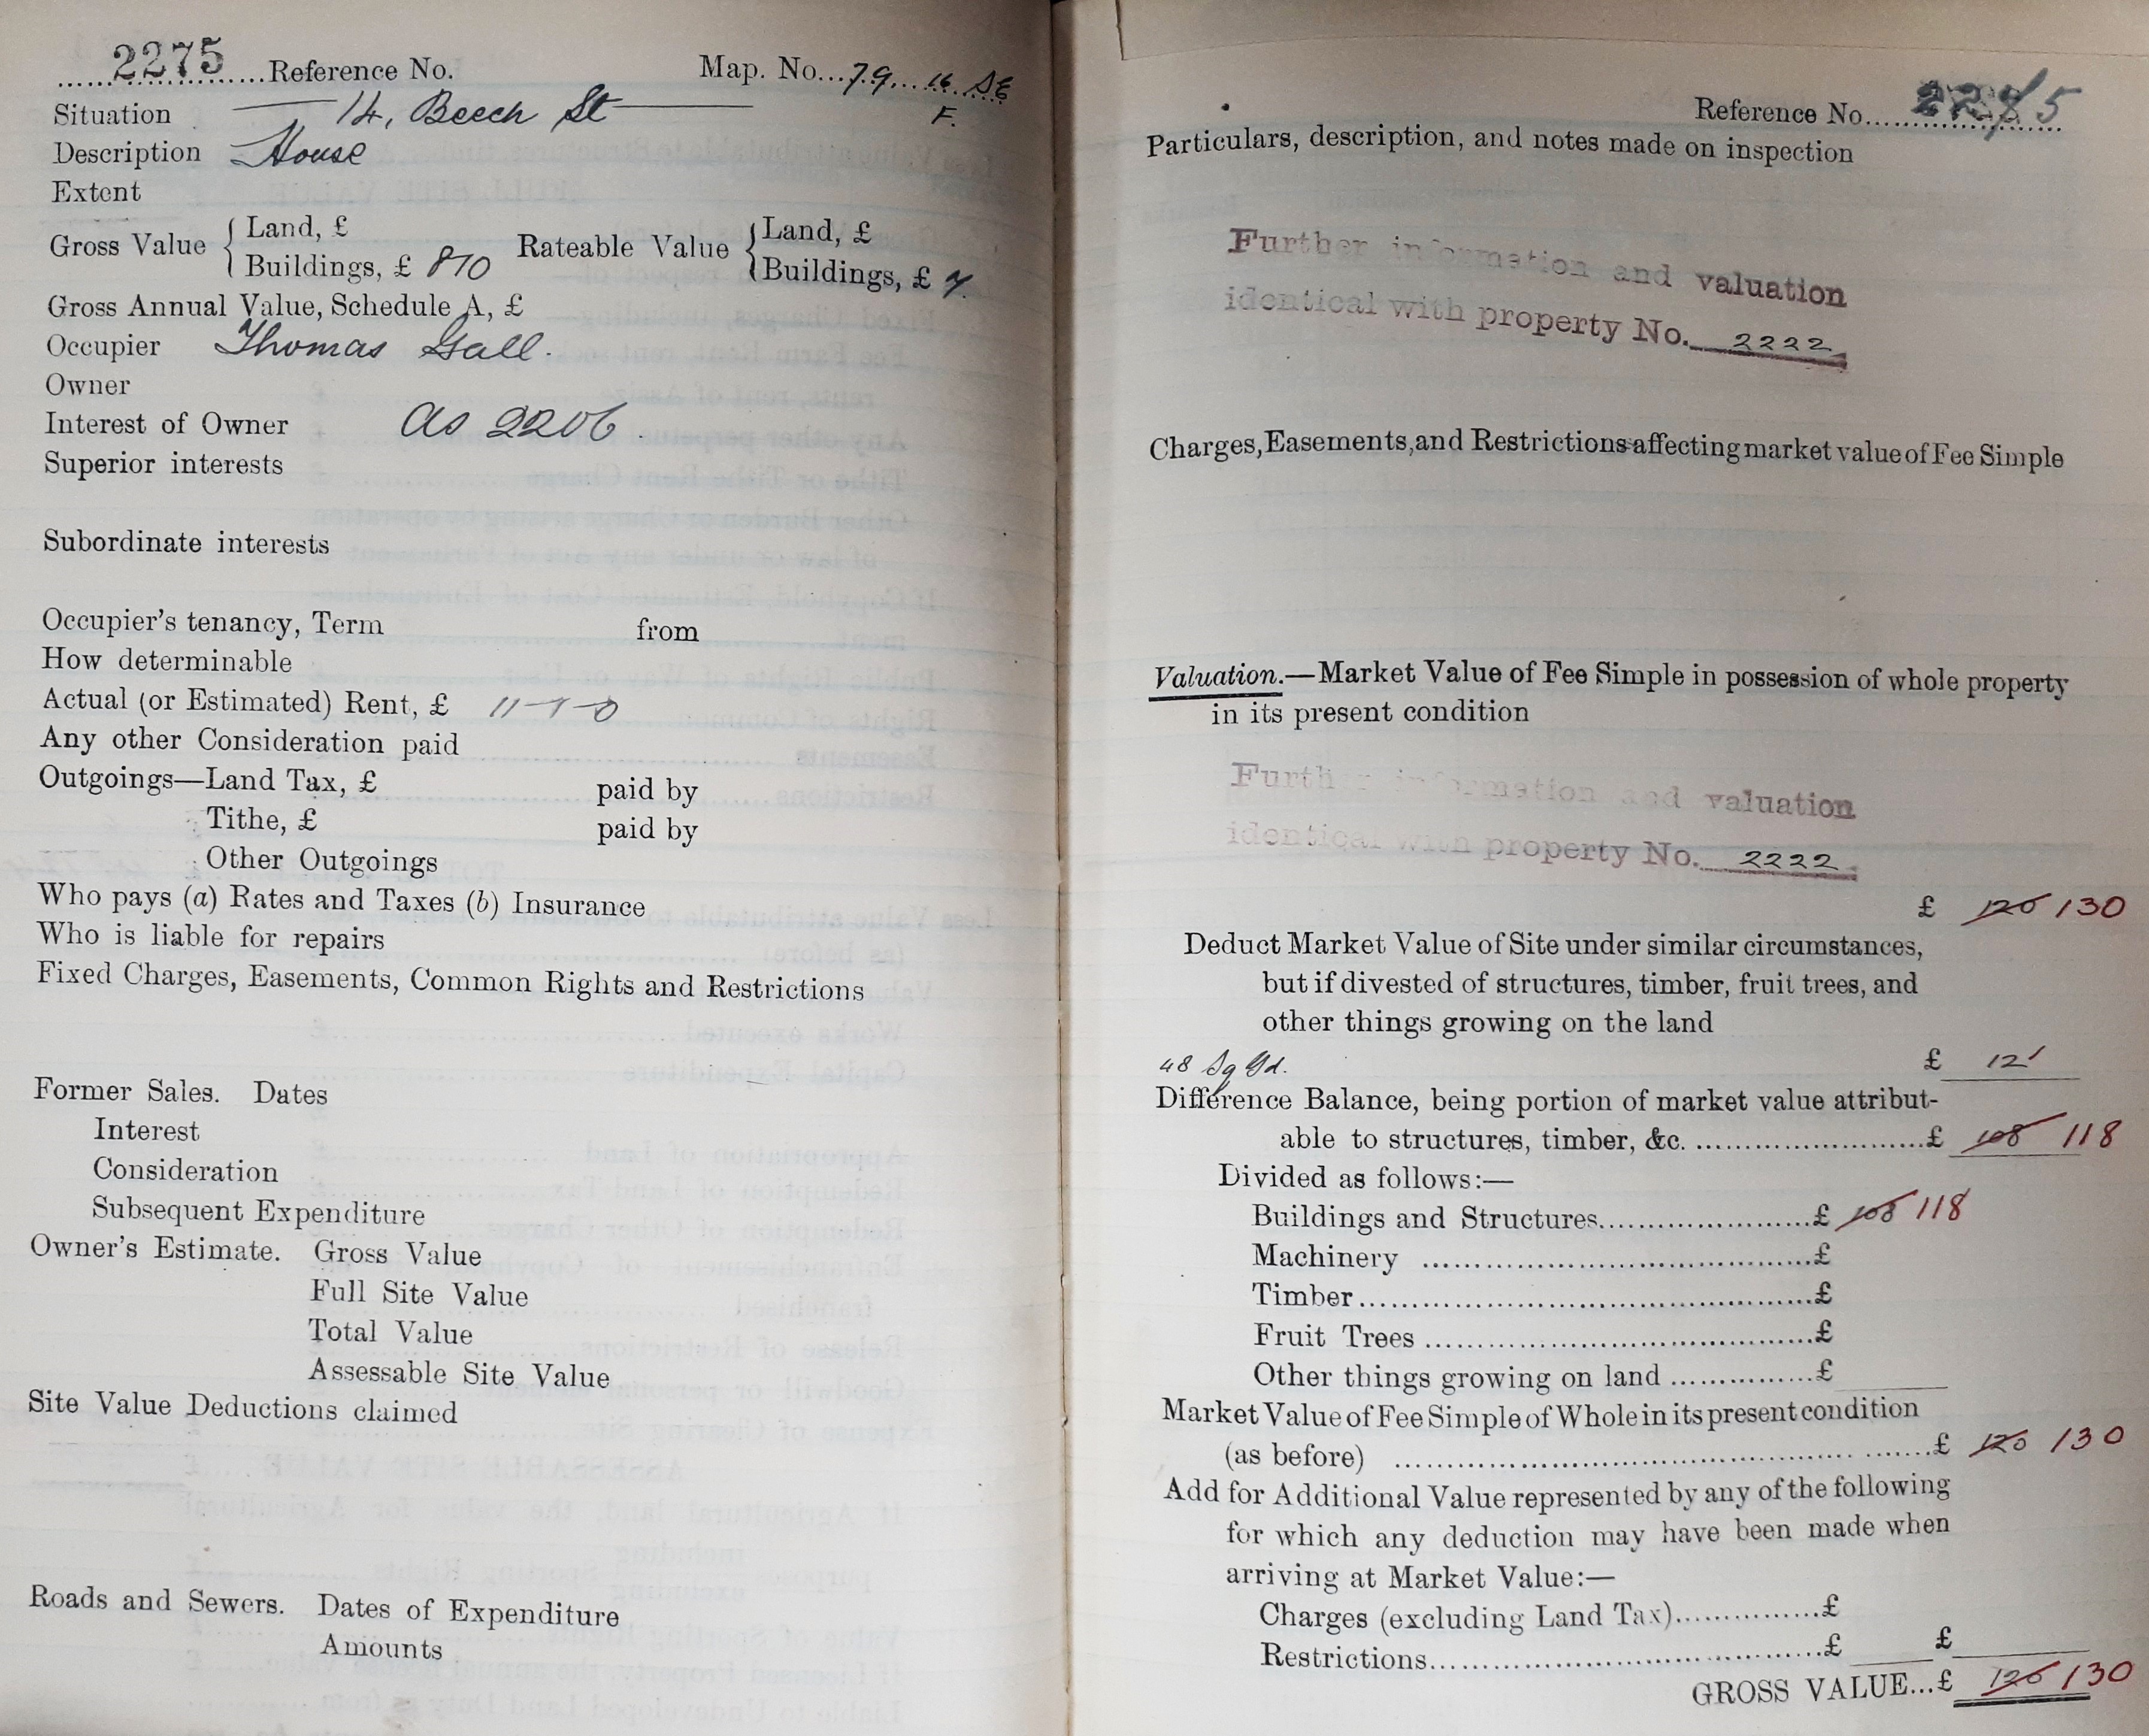 2275 Reference No. Map. No. 79 16 SE
F.
Situation 14, Beech St
Description House
Extent
Gross Value { Land, £ Rateable Value { Land, £
Buildings, £ 8 10 Buildings, £ 7.
Gross Annual Value, Schedule A, £
Occupier Thomas Gall.
Owner
Interest of Owner as 2206.
Superior interests
Subordinate interests
Occupier's tenancy, Term from
How determinable
Actual (or Estimated) Rent, £ 11-1-0
Any other Consideration paid
Outgoings—Land Tax, £ paid by
Tithe, £ paid by
Other Outgoings
Who pays (a) Rates and Taxes (b) Insurance
Who is liable for repairs
Fixed Charges, Easements, Common Rights and Restrictions
Former Sales. Dates
Interest
Consideration
Subsequent Expenditure
Owner's Estimate. Gross Value
Full Site Value
Total Value
Assessable Site Value
Site Value Deductions claimed
Roads and Sewers. Dates of Expenditure
Amounts
Reference No. 2275
Particulars, description, and notes made on inspection
Further information and valuation
identical with property No. 2222
Charges, Easements, and Restrictions affecting market value of Fee Simple
Valuation.—Market Value of Fee Simple in possession of whole property
in its present condition
Further information and valuation
identical with property No. 2222
£ 120 130
Deduct Market Value of Site under similar circumstances,
but if divested of structures, timber, fruit trees, and
other things growing on the land
48 Sq Yd. £ 12
Difference Balance, being portion of market value attribut-
able to structures, timber, &c. £ 108 118
Divided as follows:—
Buildings and Structures £ 108 118
Machinery £
Timber £
Fruit Trees £
Other things growing on land £
Market Value of Fee Simple of Whole in its present condition
(as before) £ 120 130
Add for Additional Value represented by any of the following
for which any deduction may have been made when
arriving at Market Value:—
Charges (excluding Land Tax) £
Restrictions £ £
GROSS VALUE...£ 120 130